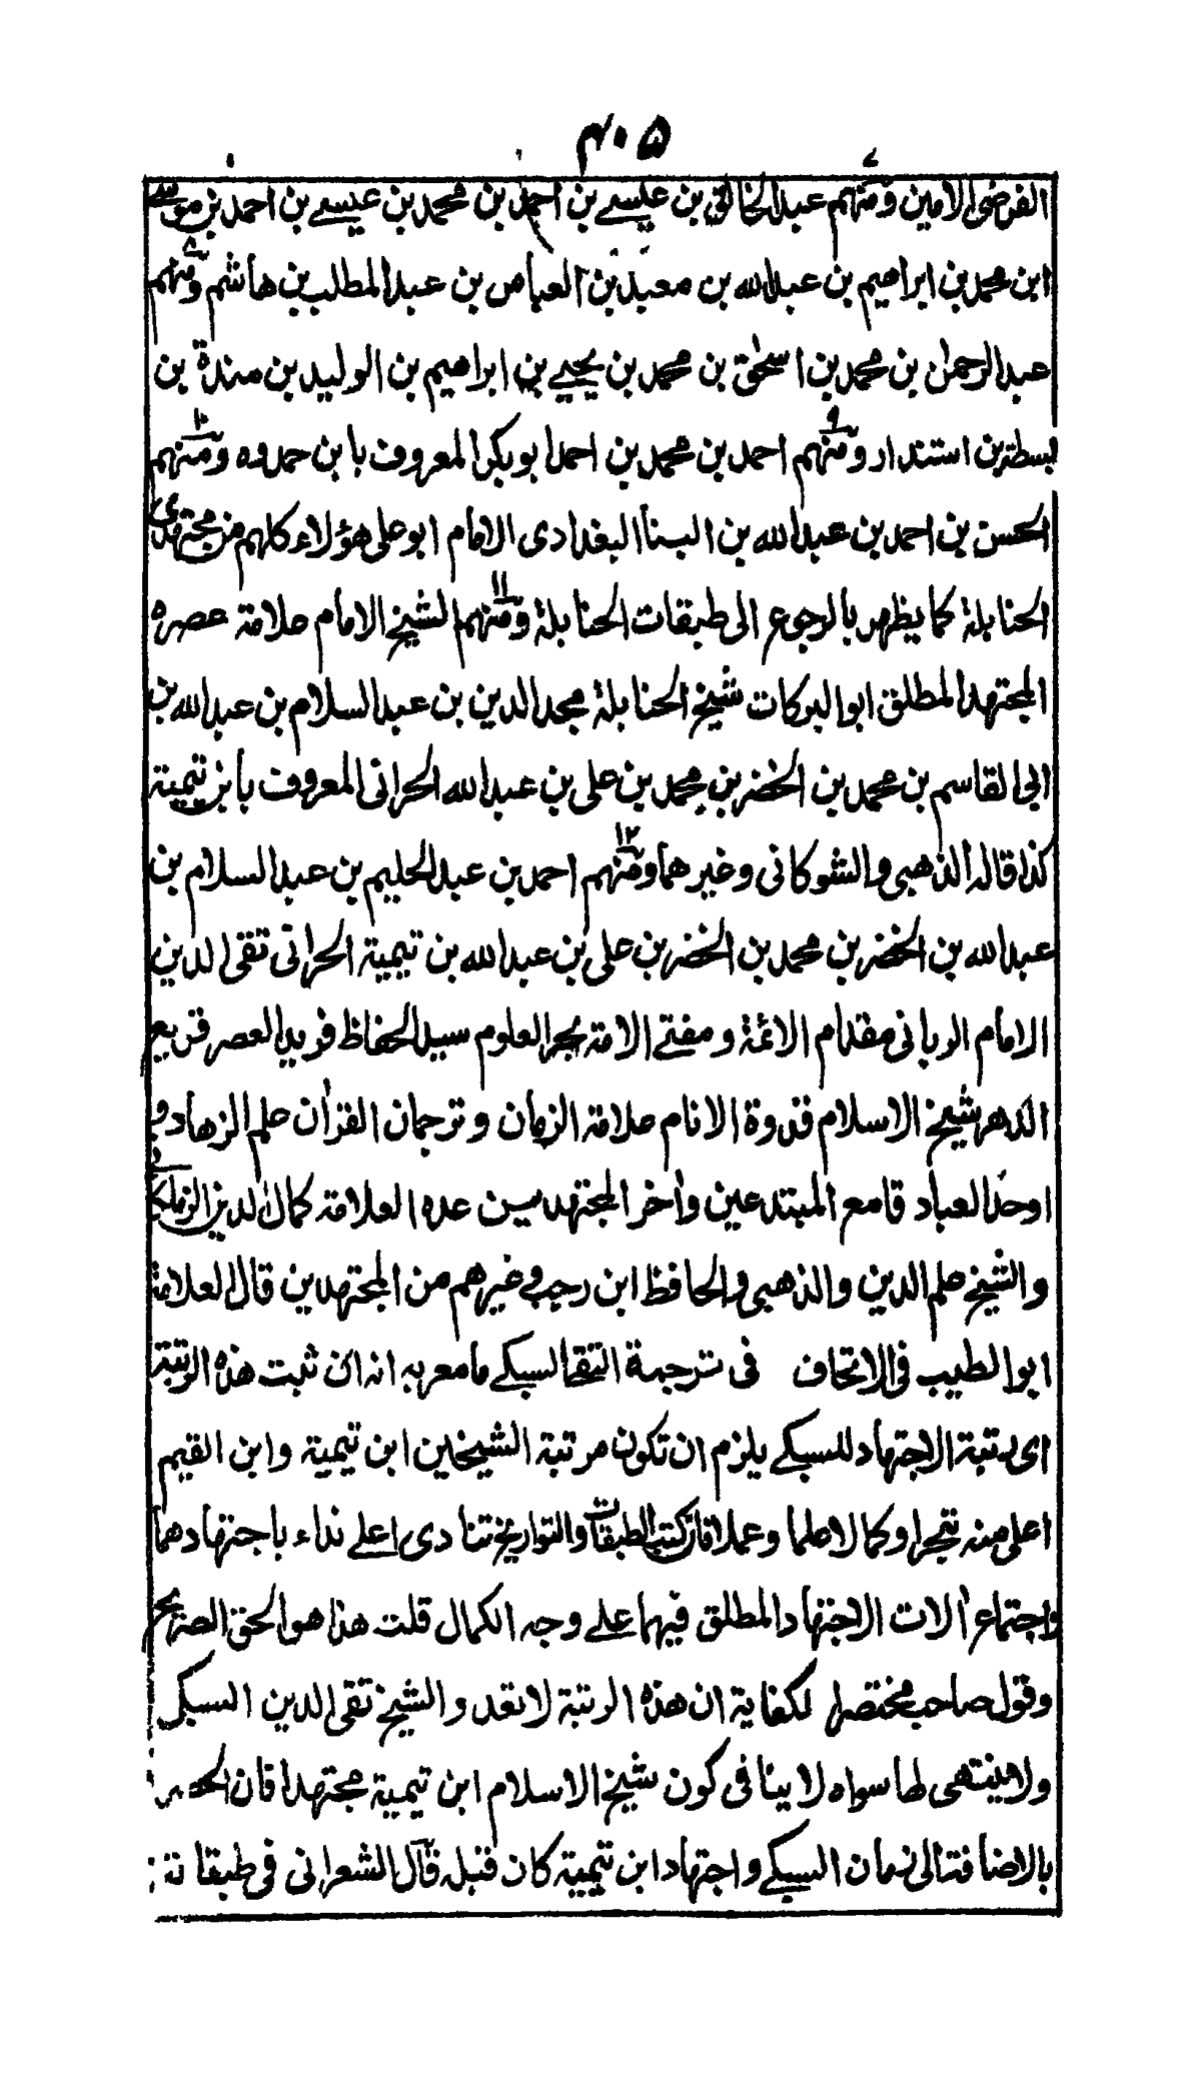 ۴۰۵
الفرضی الامین ومنهم عبد الخالق بن عیسے بن احمد بن محمد بن عیسے بن احمد بن موسے
۷
ابن محمد بن ابراهیم بن عبد الله بن معبد بن العباس بن عبد المطلب بن هاشم ومنهم
۸
عبد الرحمن بن محمد بن اسحٰق بن محمد بن یحیے بن ابراهیم بن الولید بن مندة بن
بسطة بن استندار ومنهم احمد بن محمد بن احمد ابو بکر المعروف با بن حمدوه ومنهم
۹ ۱۰
الحسن بن احمد بن عبد الله بن البنا البغدادی الامام ابو علی هؤلاء کلهم من مجتهدی
الحنابلة کما یظهر بالرجوع الی طبقات الحنابلة ومنهم الشیخ الامام علامة عصره
۱۱
المجتهد المطلق ابو البرکات شیخ الحنابلة مجد الدین بن عبد السلام بن عبد الله بن
ابی القاسم بن محمد بن الخضر بن محمد بن علی بن عبد الله الحرانی المعروف بابن تیمیة
کذا قاله الذهبی والشوکانی وغیرهما ومنهم احمد بن عبد الحلیم بن عبد السلام بن
۱۲
عبد الله بن الخضر بن محمد بن الخضر بن علی بن عبد الله بن تیمیة الحرانی تقی الدین
الامام الربانی مقدام الائمة ومفتے الامة بحر العلوم سید الحفاظ فرید العصر قریع
الدهر شیخ الاسلام قدوة الانام علامة الزمان وترجمان القراٰن علم الزهاد و
اوحد العباد قامع المبتدعین واٰخر المجتهدین عده العلامة کمال الدین الزملکانی
والشیخ علم الدین والذهبی والحافظ ابن رجب وغیرهم من المجتهدین قال العلامة
ابو الطیب فی الاتحاف فی ترجمة التقی السبکے ما معربه انه ان ثبت هذه الرتبة
ای رتبة الاجتهاد للسبکے یلزم ان تکون مرتبة الشیخین ابن تیمیة وابن القیم
اعلی منه تبحرا وکمالا علما وعملا فان کتب الطبقات والتواریخ تنادی اعلے نداء باجتهادهما
واجتماع اٰلات الاجتهاد المطلق فیهما علے وجه الکمال قلت هذا هو الحق الصریح
وقول صاحب مختصر الکفایة ان هذه الرتبة لا تعدو الشیخ تقی الدین السبکی
ولا ینتهی لها سواه لا ینافی کون شیخ الاسلام ابن تیمیة مجتهدا فان الحصر
بالاضافة الی زمان السبکے واجتهاد ابن تیمیة کان قبله قال الشعرانی فی طبقاته